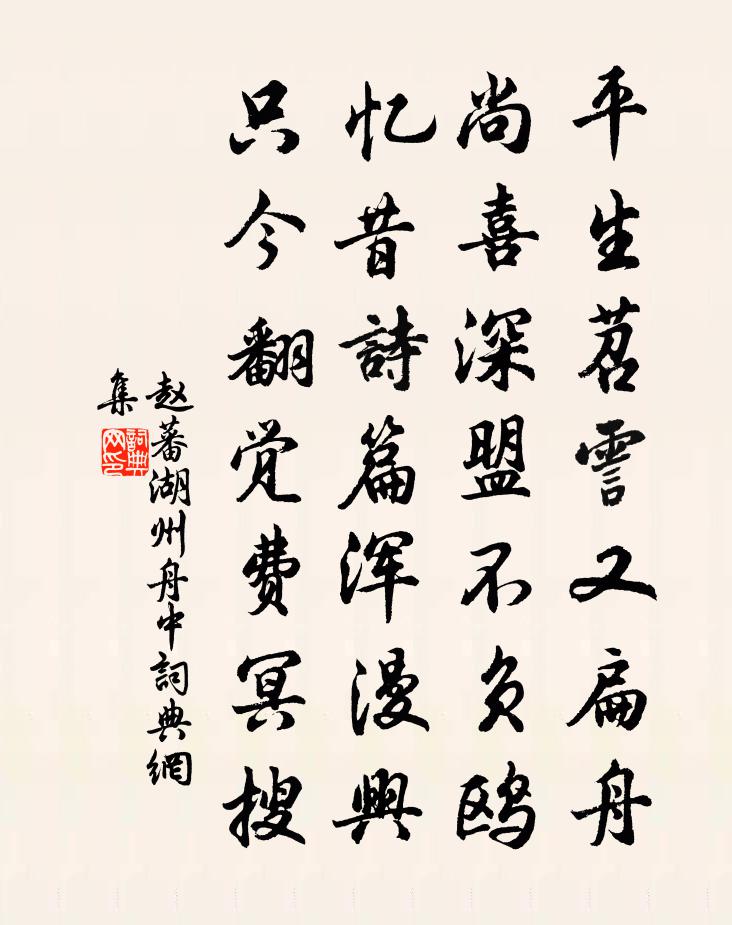 平生苕霅又扁舟
尚喜深盟不负鸥
忆昔詩篇浑漫興
只今翻觉费冥搜
赵蕃湖州舟中詞典網
集
詞典
网